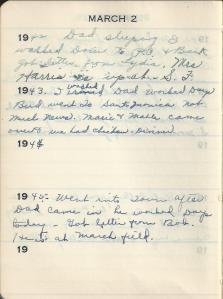 MARCH 2
1942 Dad sleeping I
washed Down to P.O. & Back
got letter from Lydia. Mrs
Harris is up at S. F.
washed
1943. I ironed Dad worked Days
Bud went to Santa Monica not
much News. Marie & Male came
over & we had chicken Dinner
1944
1945- Went into Town after
Dad came in he worked Days
today - Got letter from Bob.
He is at March field.
19